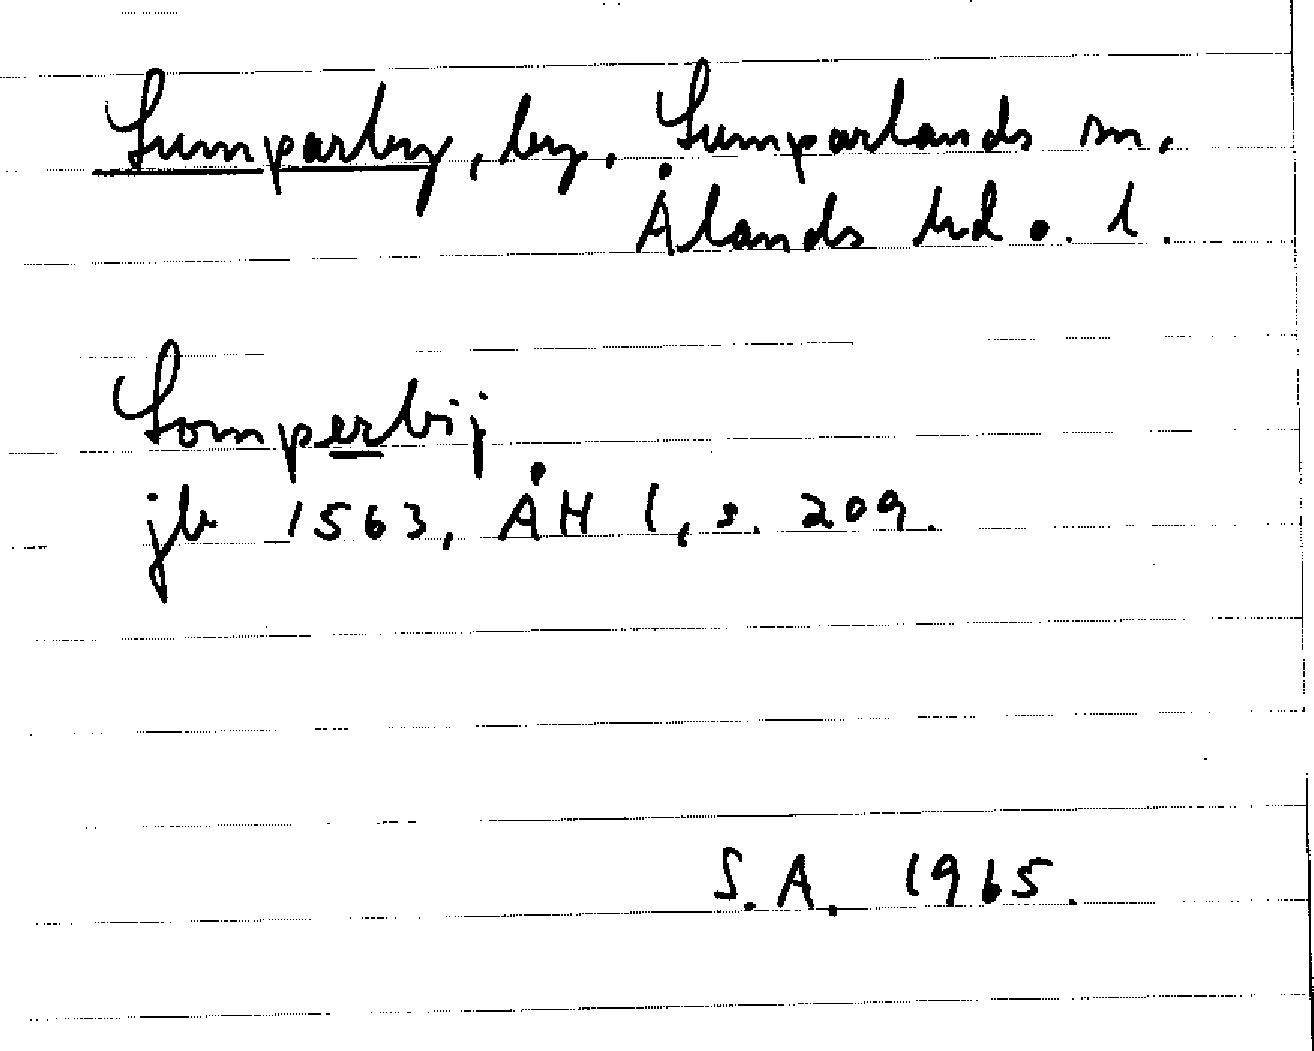 Lumparby, by. Lumparlands sn.
Ålands hd o. l.
Lomperbij
jb 1563, ÅH 1, s. 209.
S.A. 1965.